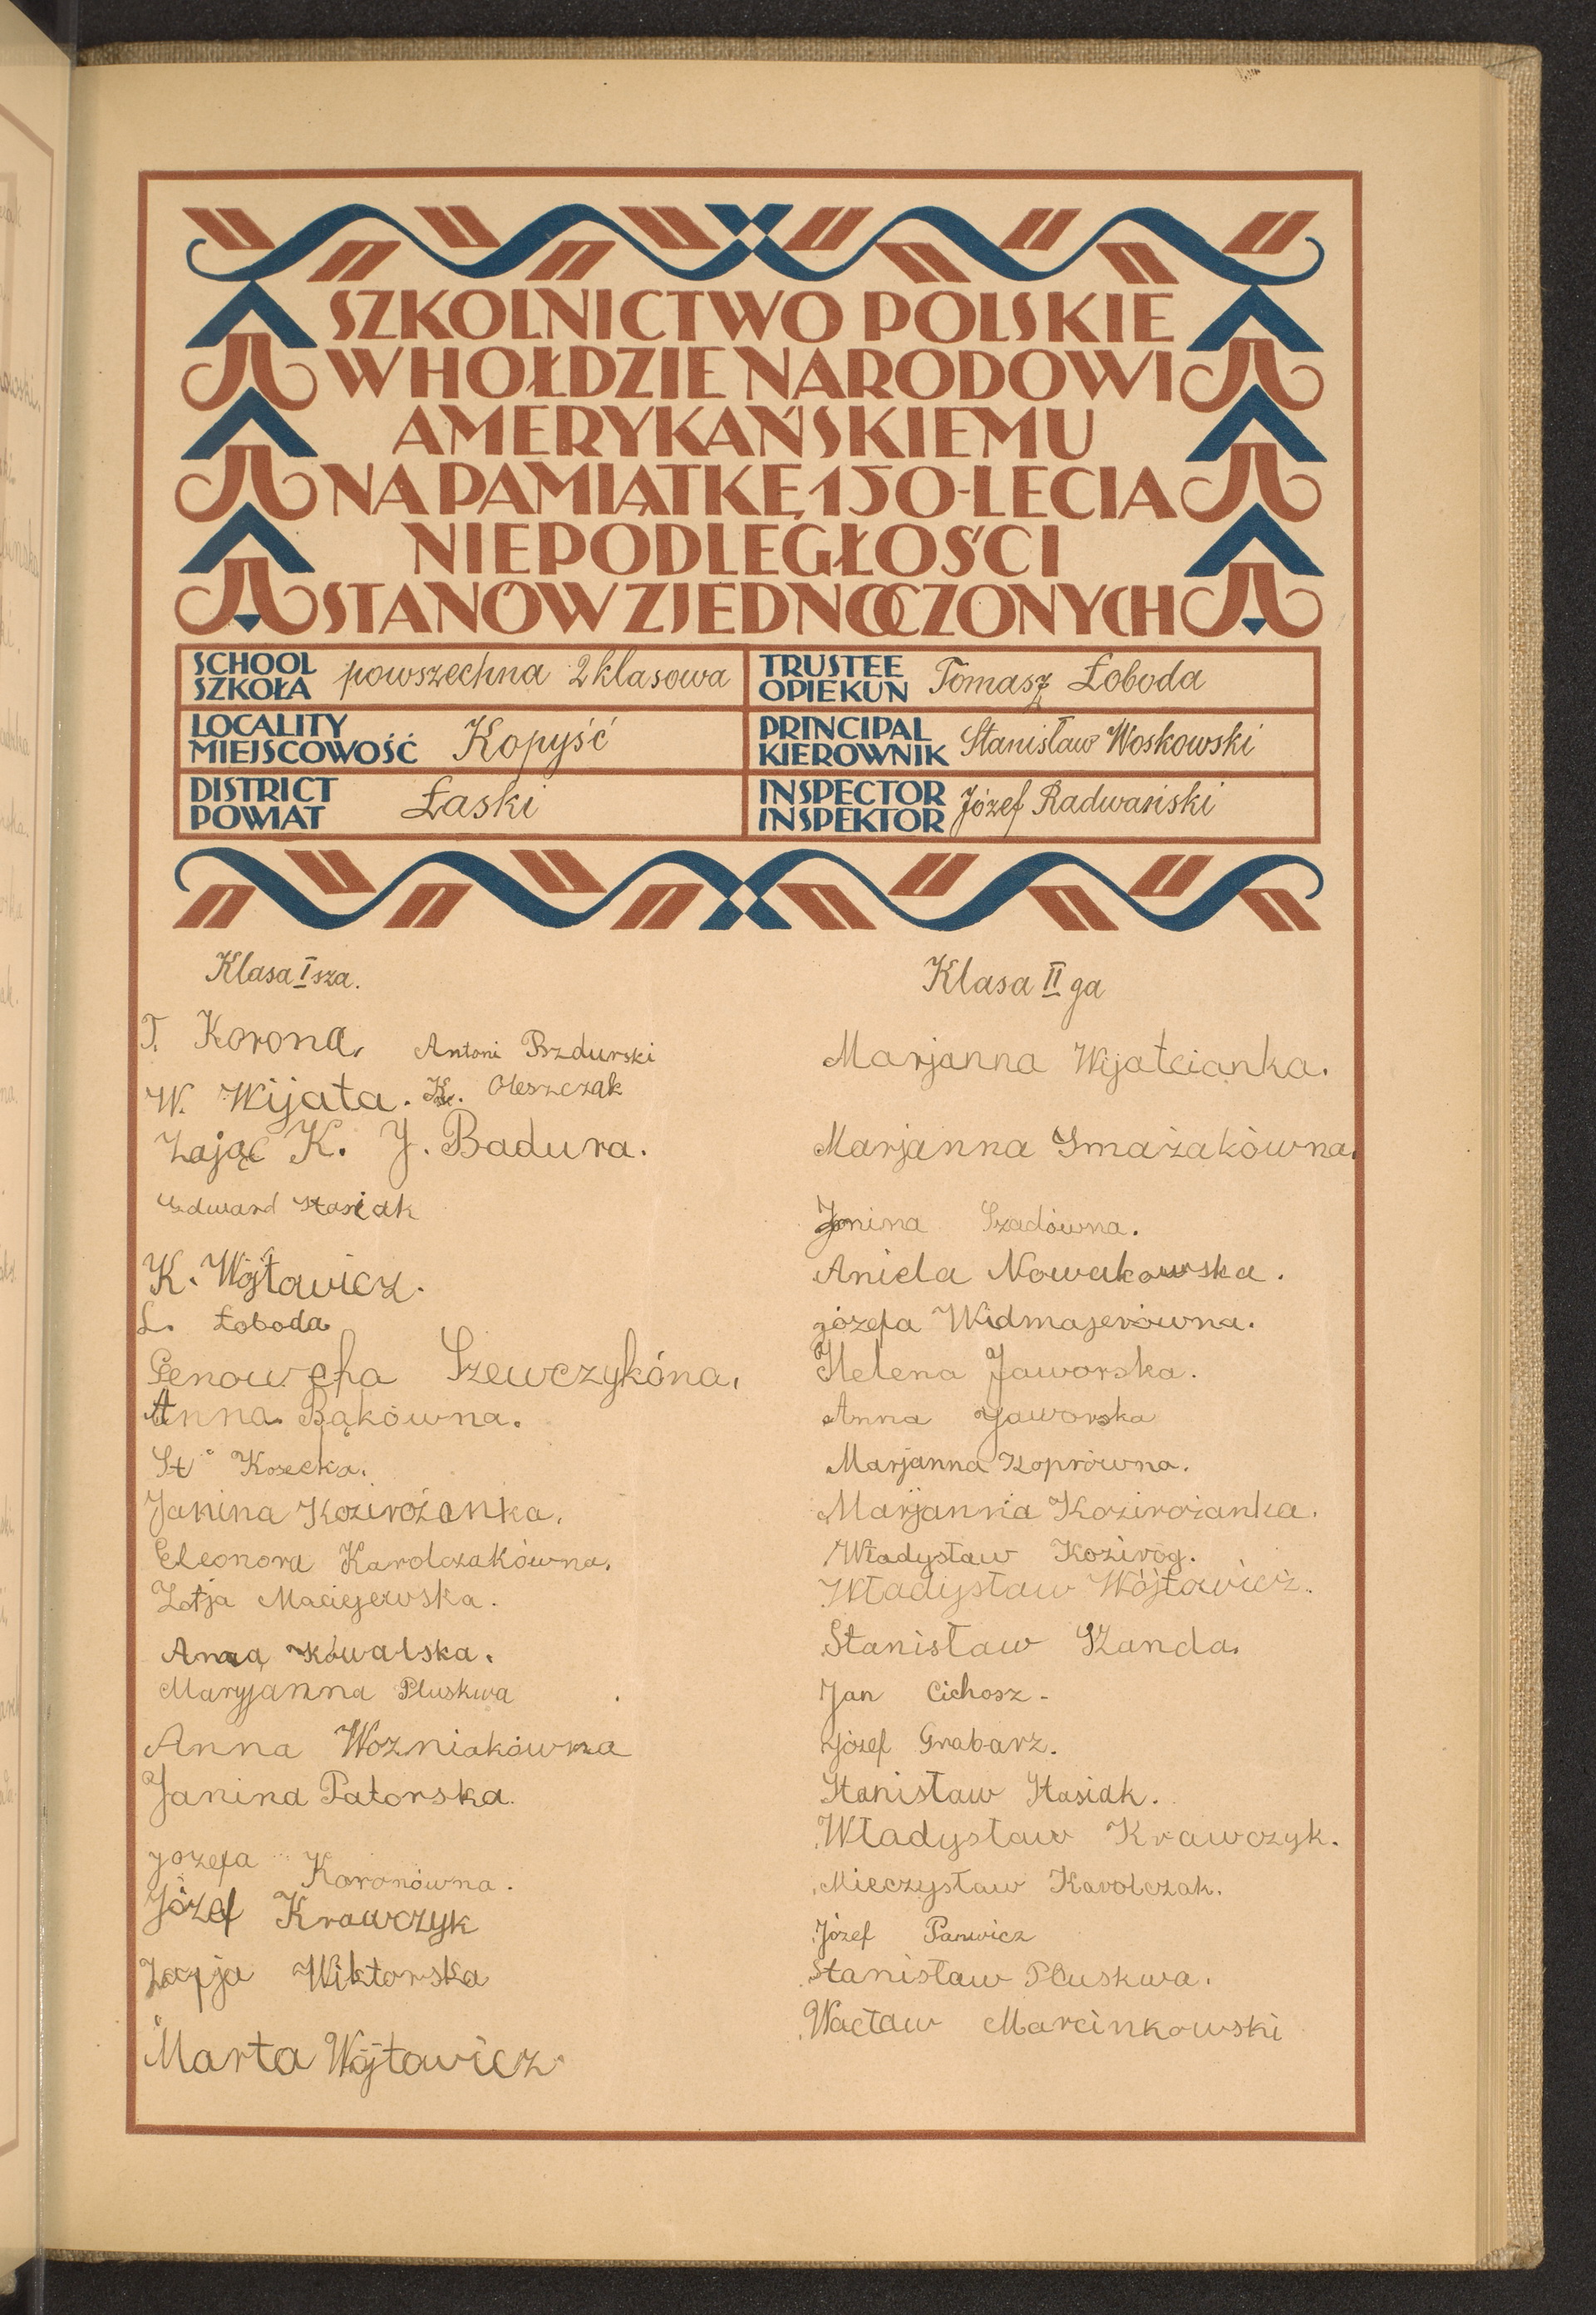 SZKOLNICTWO POLSKIE
W HOŁDZIE NARODOWI
AMERYKAŃSKIEMU
NA PAMIĄTKĘ 150-LECIA
NIEPODLEGŁOŚCI
STANÓW ZJEDNOCZONYCH
SCHOOL
SZKOŁA
powszechna 2 klasowa
TRUSTEE
OPIEKUN
Tomasz Łoboda
LOCALITY
MIEJSCOWOŚĆ
Kopyść
PRINCIPAL
KIEROWNIK
Stanisław Woskowski
DISTRICT
POWIAT
Łaski
INSPECTOR
INSPEKTOR
Józef Radwański
Klasa I sza.
T. Korona. Antoni Bzdurski
W. Wijata. K. Oleszczak
Zając K. J. Badura.
Edward Stasiak
K. Wójtowicz.
L. Łoboda
Genowefa Szewczykóna.
Anna Bąkówna.
St. Kosecka.
Janina Kozirożanka.
Eleonora Karolczakówna.
Zofja Maciejewska.
Anna Kowalska.
Maryjanna Pluskwa
Anna Wozniakówna
Janina Patorska.
Józefa Koronówna.
Józef Krawczyk
Zofja Wiktorska
Marta Wójtowicz
Klasa II ga
Marjanna Wijatcianka.
Marjanna Smażakówna.
Janina Szadówna.
Aniela Nowakowska.
józefa Widmajerówna.
Helena Jaworska.
Anna Jaworska
Marjanna Koprówna.
Marjanna Kozirożanka.
Władysław Kozirog.
Władysław Wójtowicz.
Stanisław Szanda.
Jan Cichosz.
Józef Grabarz.
Stanisław Stasiak.
Władysław Krawczyk.
Mieczysław Karolczak.
Józef Panwicz
Stanisław Pluskwa.
Wacław Marcinkowski